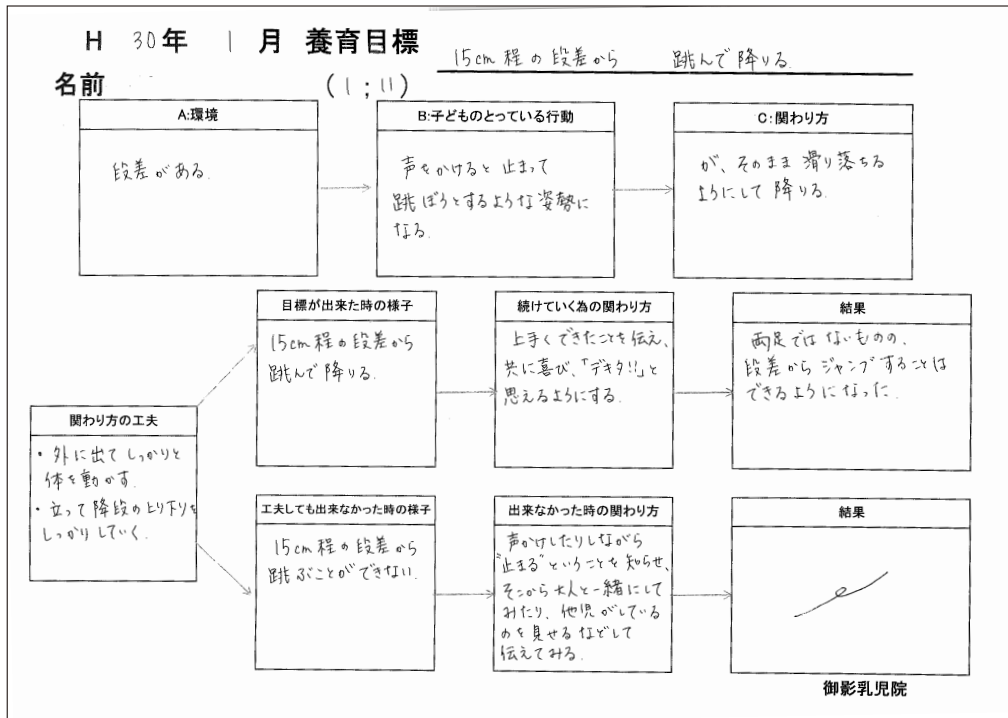 H 30年 1月 養育目標
15cm 程の段差から 跳んで降りる.
名前 (1;11)
A:環境
段差がある.
B:子どものとっている行動
声をかけると止まって
跳ぼうとするような姿勢に
なる.
C:関わり方
が、そのまま滑り落ちる
ようにして降りる.
関わり方の工夫
・外に出てしっかりと
体を動かす.
・立って降段の上り下りを
しっかりしていく.
目標が出来た時の様子
15cm程の段差から
跳んで降りる.
続けていく為の関わり方
上手くできたことを伝え、
共に喜び、「デキタ!!」と
思えるようにする.
結果
両足ではないものの、
段差からジャンプすることは
できるようになった.
工夫しても出来なかった時の様子
15cm程の段差から
跳ぶことができない.
出来なかった時の関わり方
声かけしたりしながら
"止まる"ということを知らせ、
そこから大人と一緒にして
みたり、他児がしている
のを見せるなどして
伝えてみる.
結果
御影乳児院